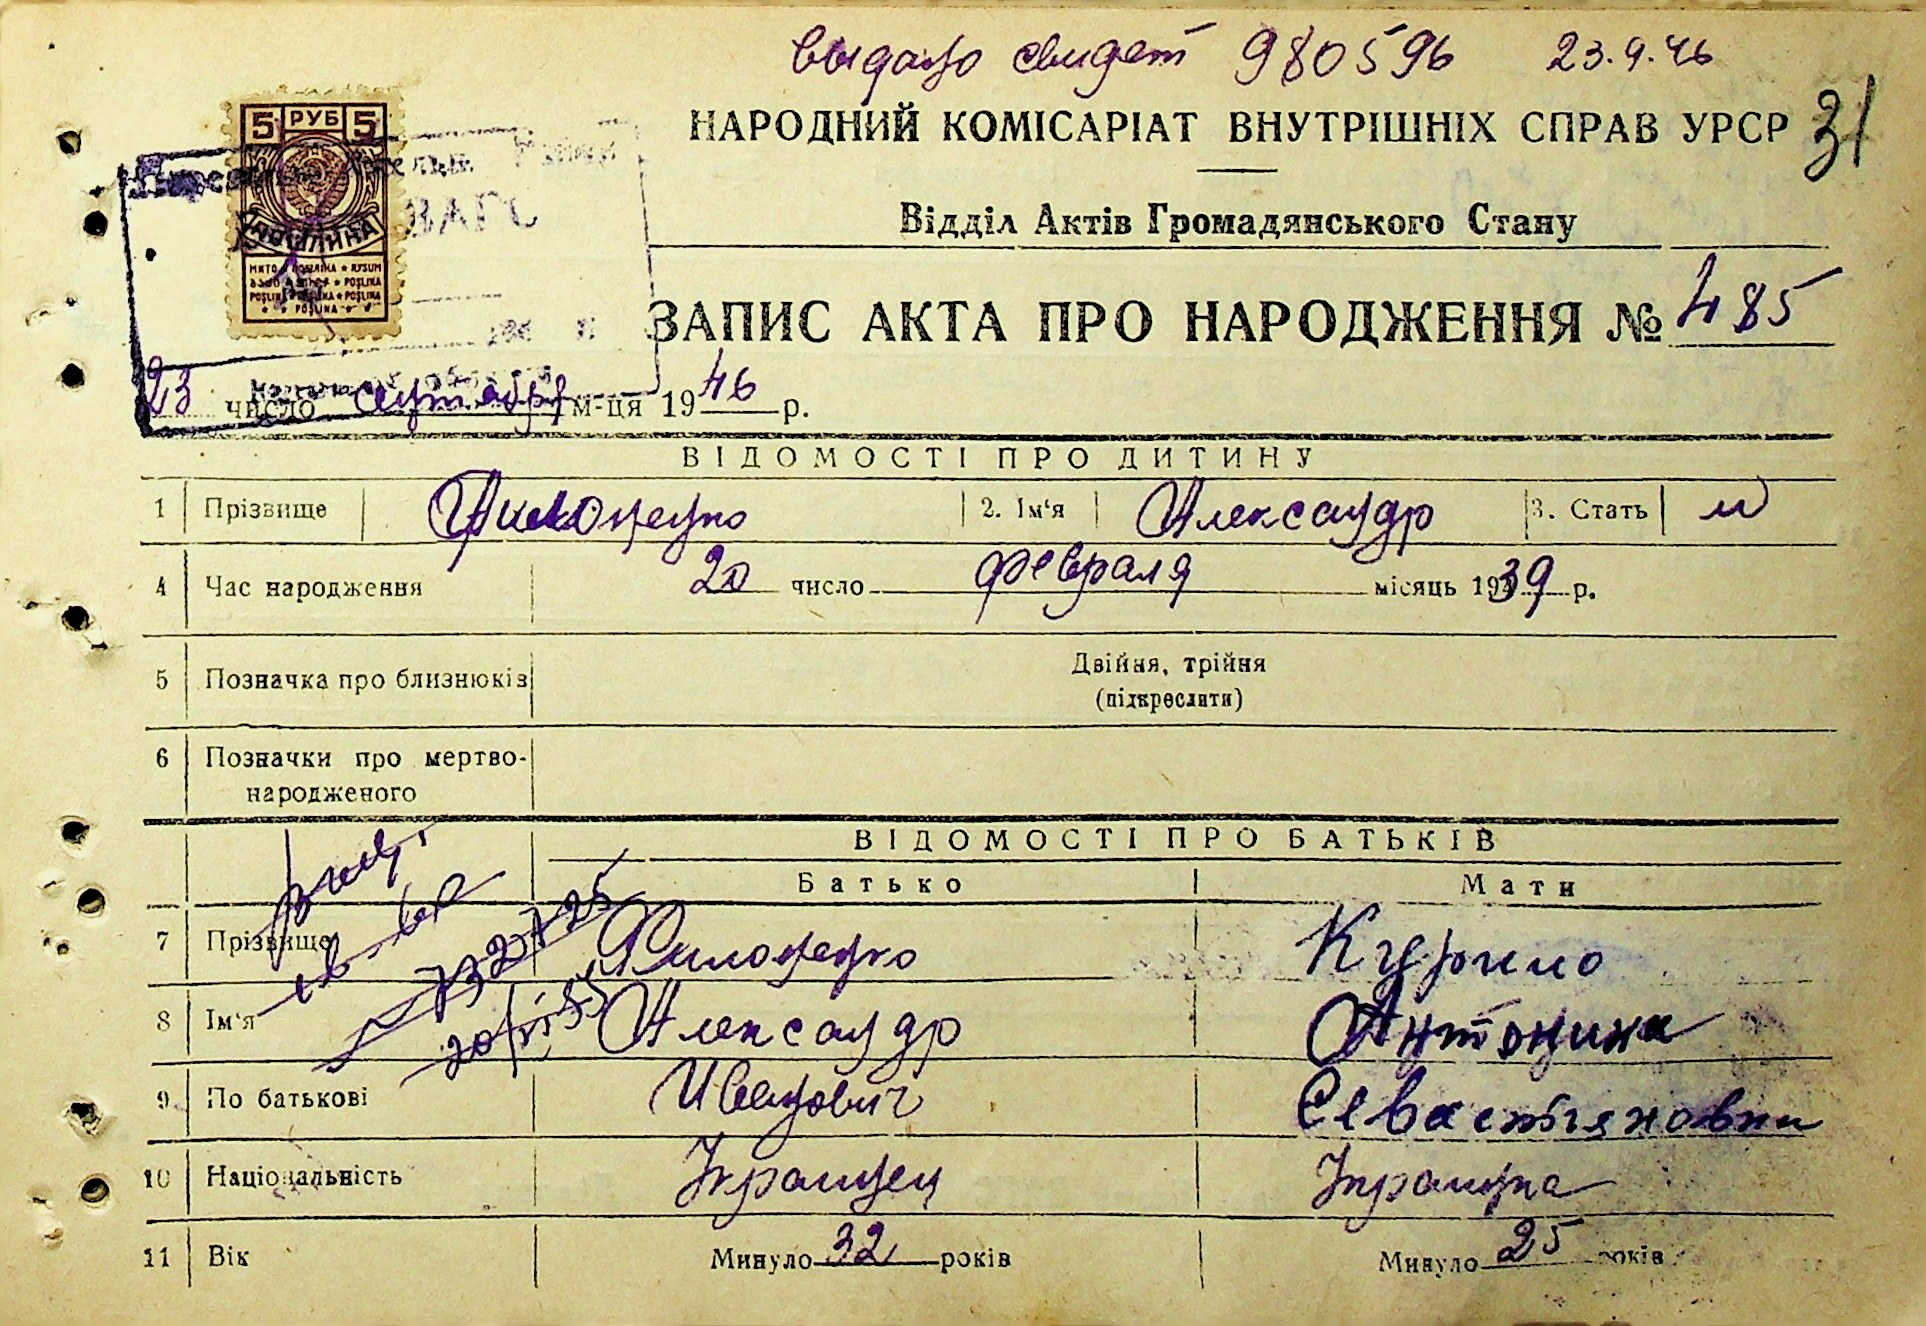 выдано свидет 980596 23.9.46
НАРОДНИЙ КОМІСАРІАТ ВНУТРІШНІХ СПРАВ УРСР 31
5 РУБ 5
ЗАГС
Відділ Актів Громадянського Стану
МИТО
POSLINA
ЗАПИС АКТА ПРО НАРОДЖЕННЯ № 485
23 число сентября м-ця 1946 р.
ВІДОМОСТІ ПРО ДИТИНУ
1 Прізвище 2. Ім‘я Александр 3. Стать м
4 Час народження 20 число февраля місяць 1939 р.
5 Позначка про близнюків Двійня, трійня
(підкреслити)
6 Позначки про мертво-
народженого
ВІДОМОСТІ ПРО БАТЬКІВ
Батько Мати
7 Прізвище Филоненко Курило
8 Ім‘я Александр Антонина
9 По батькові Иванович Севастяновна
10 Національність Украинец Украинка
11 Вік Минуло 32 років Минуло 25 років